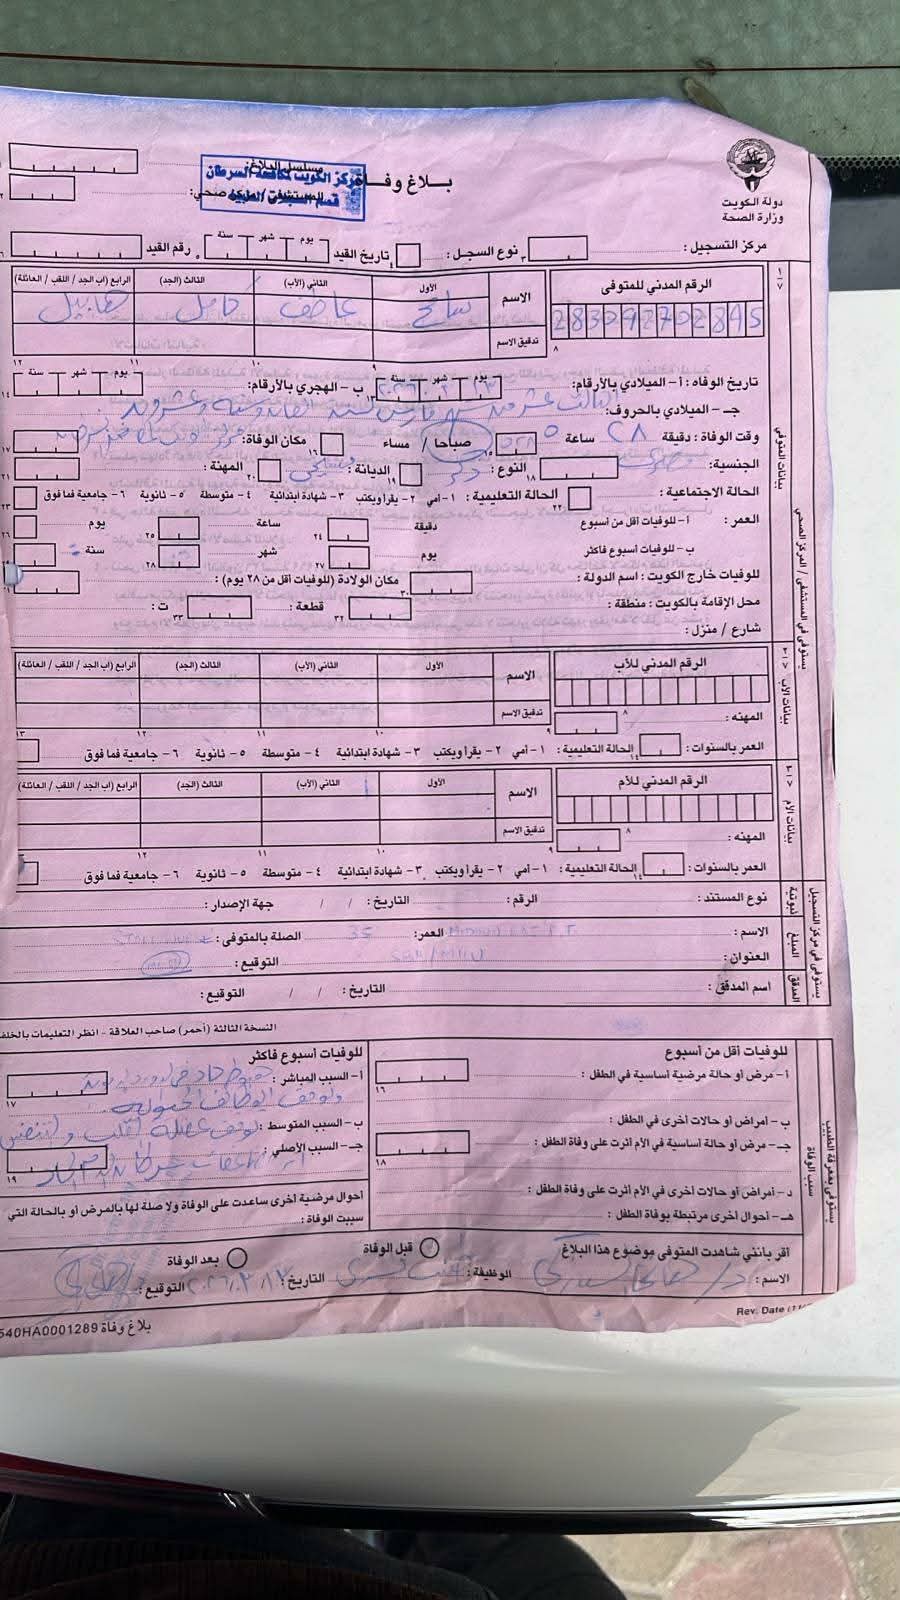 دولة الكويت
وزارة الصحة
بلاغ وفاة
مسلسل البلاغ:
المستشفى / مركز صحي:
مركز الكويت لمكافحة السرطان
قسم السجلات الطبية
مركز التسجيل: نوع السجل: تاريخ القيد يوم شهر سنة رقم القيد
الرقم المدني للمتوفى الاسم الأول الثاني (الأب) الثالث (الجد) الرابع (اب الجد / اللقب / العائلة)
283092702845 سامح عاطف كامل هابيل
تدقيق الاسم
تاريخ الوفاه: أ - الميلادي بالأرقام: يوم شهر سنة ب - الهجري بالأرقام: يوم شهر سنة
جـ - الميلادي بالحروف: الثالث عشر من شهر مارس لسنة ألفان وستة وعشرون
وقت الوفاة: دقيقة ٢٨ ساعة ٥ صباحا / مساء مكان الوفاة:
الجنسية: مصري النوع: ذكر الديانة: مسيحي المهنة:
الحالة الاجتماعية: الحالة التعليمية: ١- أمي ٢- يقرأ ويكتب ٣- شهادة ابتدائية ٤- متوسطة ٥- ثانوية ٦- جامعية فما فوق
العمر: أ - للوفيات أقل من أسبوع دقيقة ساعة يوم
ب - للوفيات أسبوع فأكثر يوم شهر سنة
للوفيات خارج الكويت: اسم الدولة: مكان الولادة (للوفيات أقل من ٢٨ يوم):
محل الإقامة بالكويت: منطقة: قطعة: ت:
شارع / منزل:
يستوفى في المستشفى / المركز الصحي
بيانات المتوفى
الرقم المدني للأب الاسم الأول الثاني (الأب) الثالث (الجد) الرابع (اب الجد / اللقب / العائلة)
تدقيق الاسم
المهنه:
العمر بالسنوات: الحالة التعليمية: ١- أمي ٢- يقرأ ويكتب ٣- شهادة ابتدائية ٤- متوسطة ٥- ثانوية ٦- جامعية فما فوق
بيانات الأب
الرقم المدني للأم الاسم الأول الثاني (الأب) الثالث (الجد) الرابع (اب الجد / اللقب / العائلة)
تدقيق الاسم
المهنه:
العمر بالسنوات: الحالة التعليمية: ١- أمي ٢- يقرأ ويكتب ٣- شهادة ابتدائية ٤- متوسطة ٥- ثانوية ٦- جامعية فما فوق
بيانات الأم
يستوفى في مركز التسجيل
نوع المستند: الرقم: التاريخ: / / جهة الإصدار:
المبلغ
الاسم: العمر: 35 الصلة بالمتوفى:
العنوان: التوقيع:
المدقق
اسم المدقق: التاريخ: / / التوقيع:
النسخة الثالثة (أحمر) صاحب العلاقة - انظر التعليمات بالخلف
يستوفى بمعرفة الطبيب
سبب الوفاة
للوفيات أقل من أسبوع
أ- مرض أو حالة مرضية أساسية في الطفل:
ب- أمراض أو حالات أخرى في الطفل:
جـ - مرض أو حالة أساسية في الأم أثرت على وفاة الطفل:
د- أمراض أو حالات أخرى في الأم أثرت على وفاة الطفل:
هـ - أحوال أخرى مرتبطة بوفاة الطفل:
للوفيات أسبوع فأكثر
أ- السبب المباشر: هبوط حاد في الدورة الدموية
وتوقف الوظائف الحيوية
ب- السبب المتوسط: توقف عضلة القلب والتنفس
جـ - السبب الأصلي:
أحوال مرضية أخرى ساعدت على الوفاة ولا صلة لها بالمرض أو بالحالة التي
سببت الوفاة:
أقر بأنني شاهدت المتوفى موضوع هذا البلاغ قبل الوفاة بعد الوفاة
الاسم: الوظيفة: التاريخ: التوقيع:
بلاغ وفاة 540HA0001289
Rev. Date